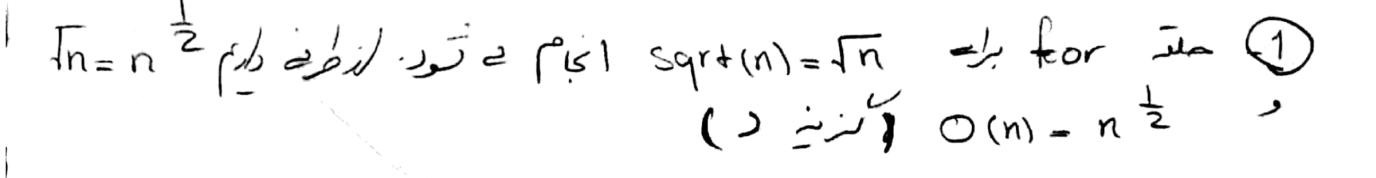 ① حلقه for برای sqrt(n) = √n انجام می شود. از طرفی داریم √n = n^1/2
و O(n) = n^1/2 (گزینه د)